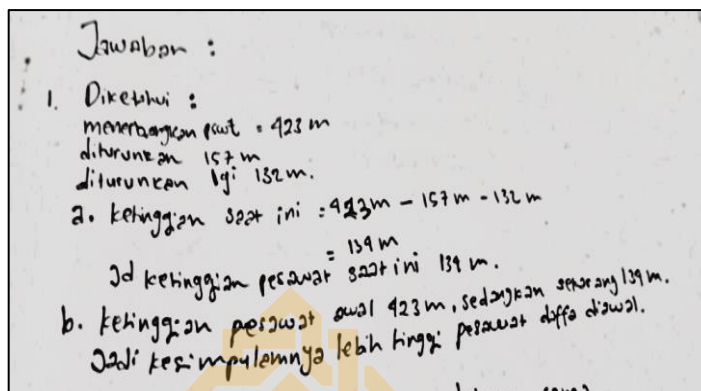 Jawaban :
1. Diketahui :
menerbangkan pswt = 423 m
diturunkan 157 m
diturunkan lgi 132 m.
a. ketinggian saat ini = 423 m - 157 m - 132 m
= 134 m
Jd ketinggian pesawat saat ini 134 m.
b. ketinggian pesawat awal 423 m, sedangkan sekarang 134 m.
Jadi kesimpulannya lebih tinggi pesawat daffa diawal.